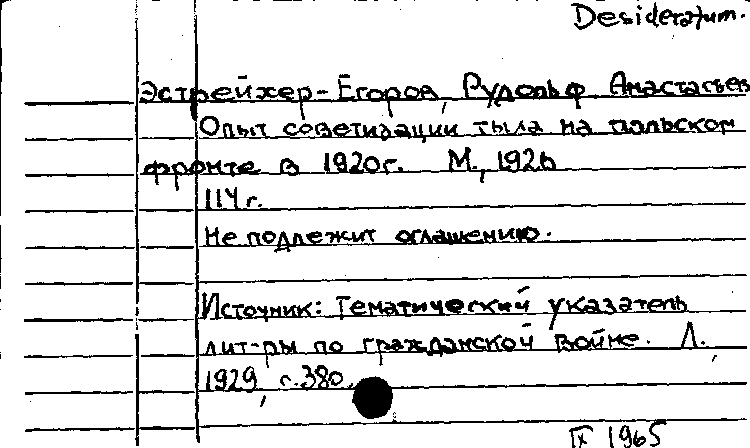 Desideratum.
Эстрейхер-Егоров, Рудольф Анастасьев
Опыт советизации тыла на польском
фронте в 1920г. М., 1926
114 с.
Не подлежит оглашению.
Источник: Тематический указатель
лит-ры по гражданской войне. Л.
1929, с.380.
IX 1965